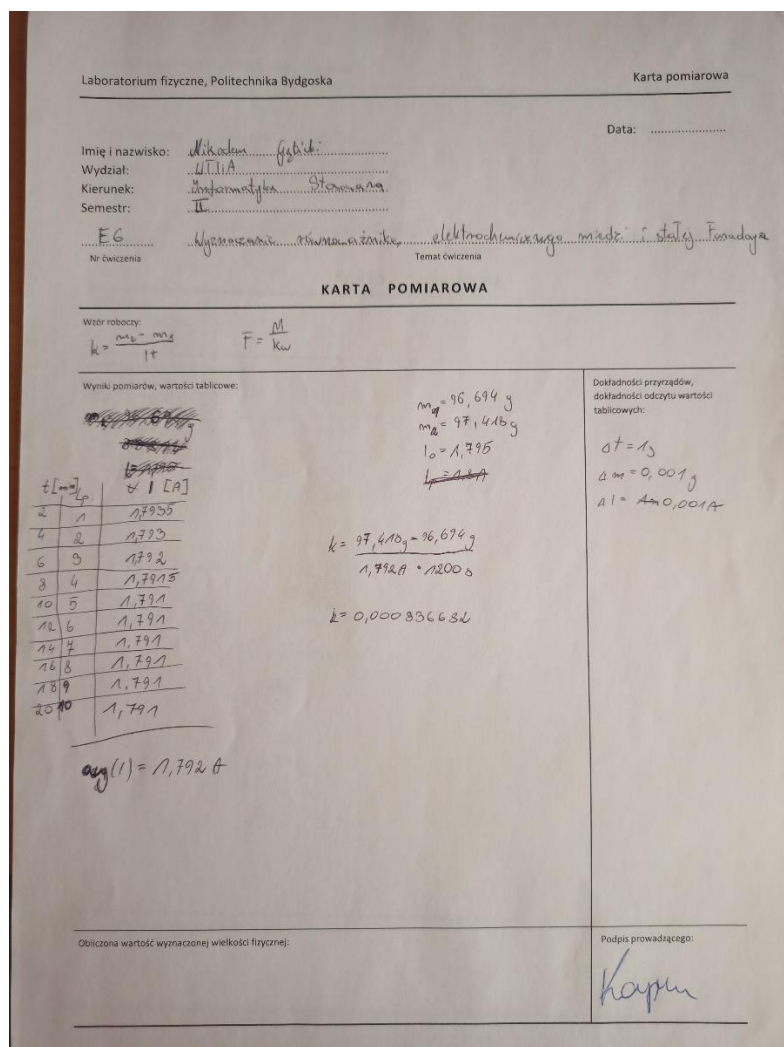 Laboratorium fizyczne, Politechnika Bydgoska
Karta pomiarowa
Data: ......................
Imię i nazwisko: Nikodem
Wydział: WTIiA
Kierunek: Informatyka Stosowana
Semestr: II
E6 Wyznaczanie równoważnika elektrochemicznego miedzi i stałej Faradaya
Nr ćwiczenia
Temat ćwiczenia
KARTA POMIAROWA
Wzór roboczy:
k = m₂ - m₁ / It
F = M / kw
Wyniki pomiarów, wartości tablicowe:
m₁ = 96,694 g
m₂ = 97,418 g
I₀ = 1,795
t[min] Lp. I [A]
2 1 1,7935
4 2 1,793
6 3 1,792
8 4 1,7915
10 5 1,791
12 6 1,791
14 7 1,791
16 8 1,791
18 9 1,791
20 10 1,791
avg(I) = 1,792 A
k = 97,418g - 96,694g / 1,792A · 1200s
k = 0,000336682
Dokładności przyrządów,
dokładności odczytu wartości
tablicowych:
Δt = 1s
Δm = 0,001g
ΔI = 0,001A
Obliczona wartość wyznaczonej wielkości fizycznej:
Podpis prowadzącego: